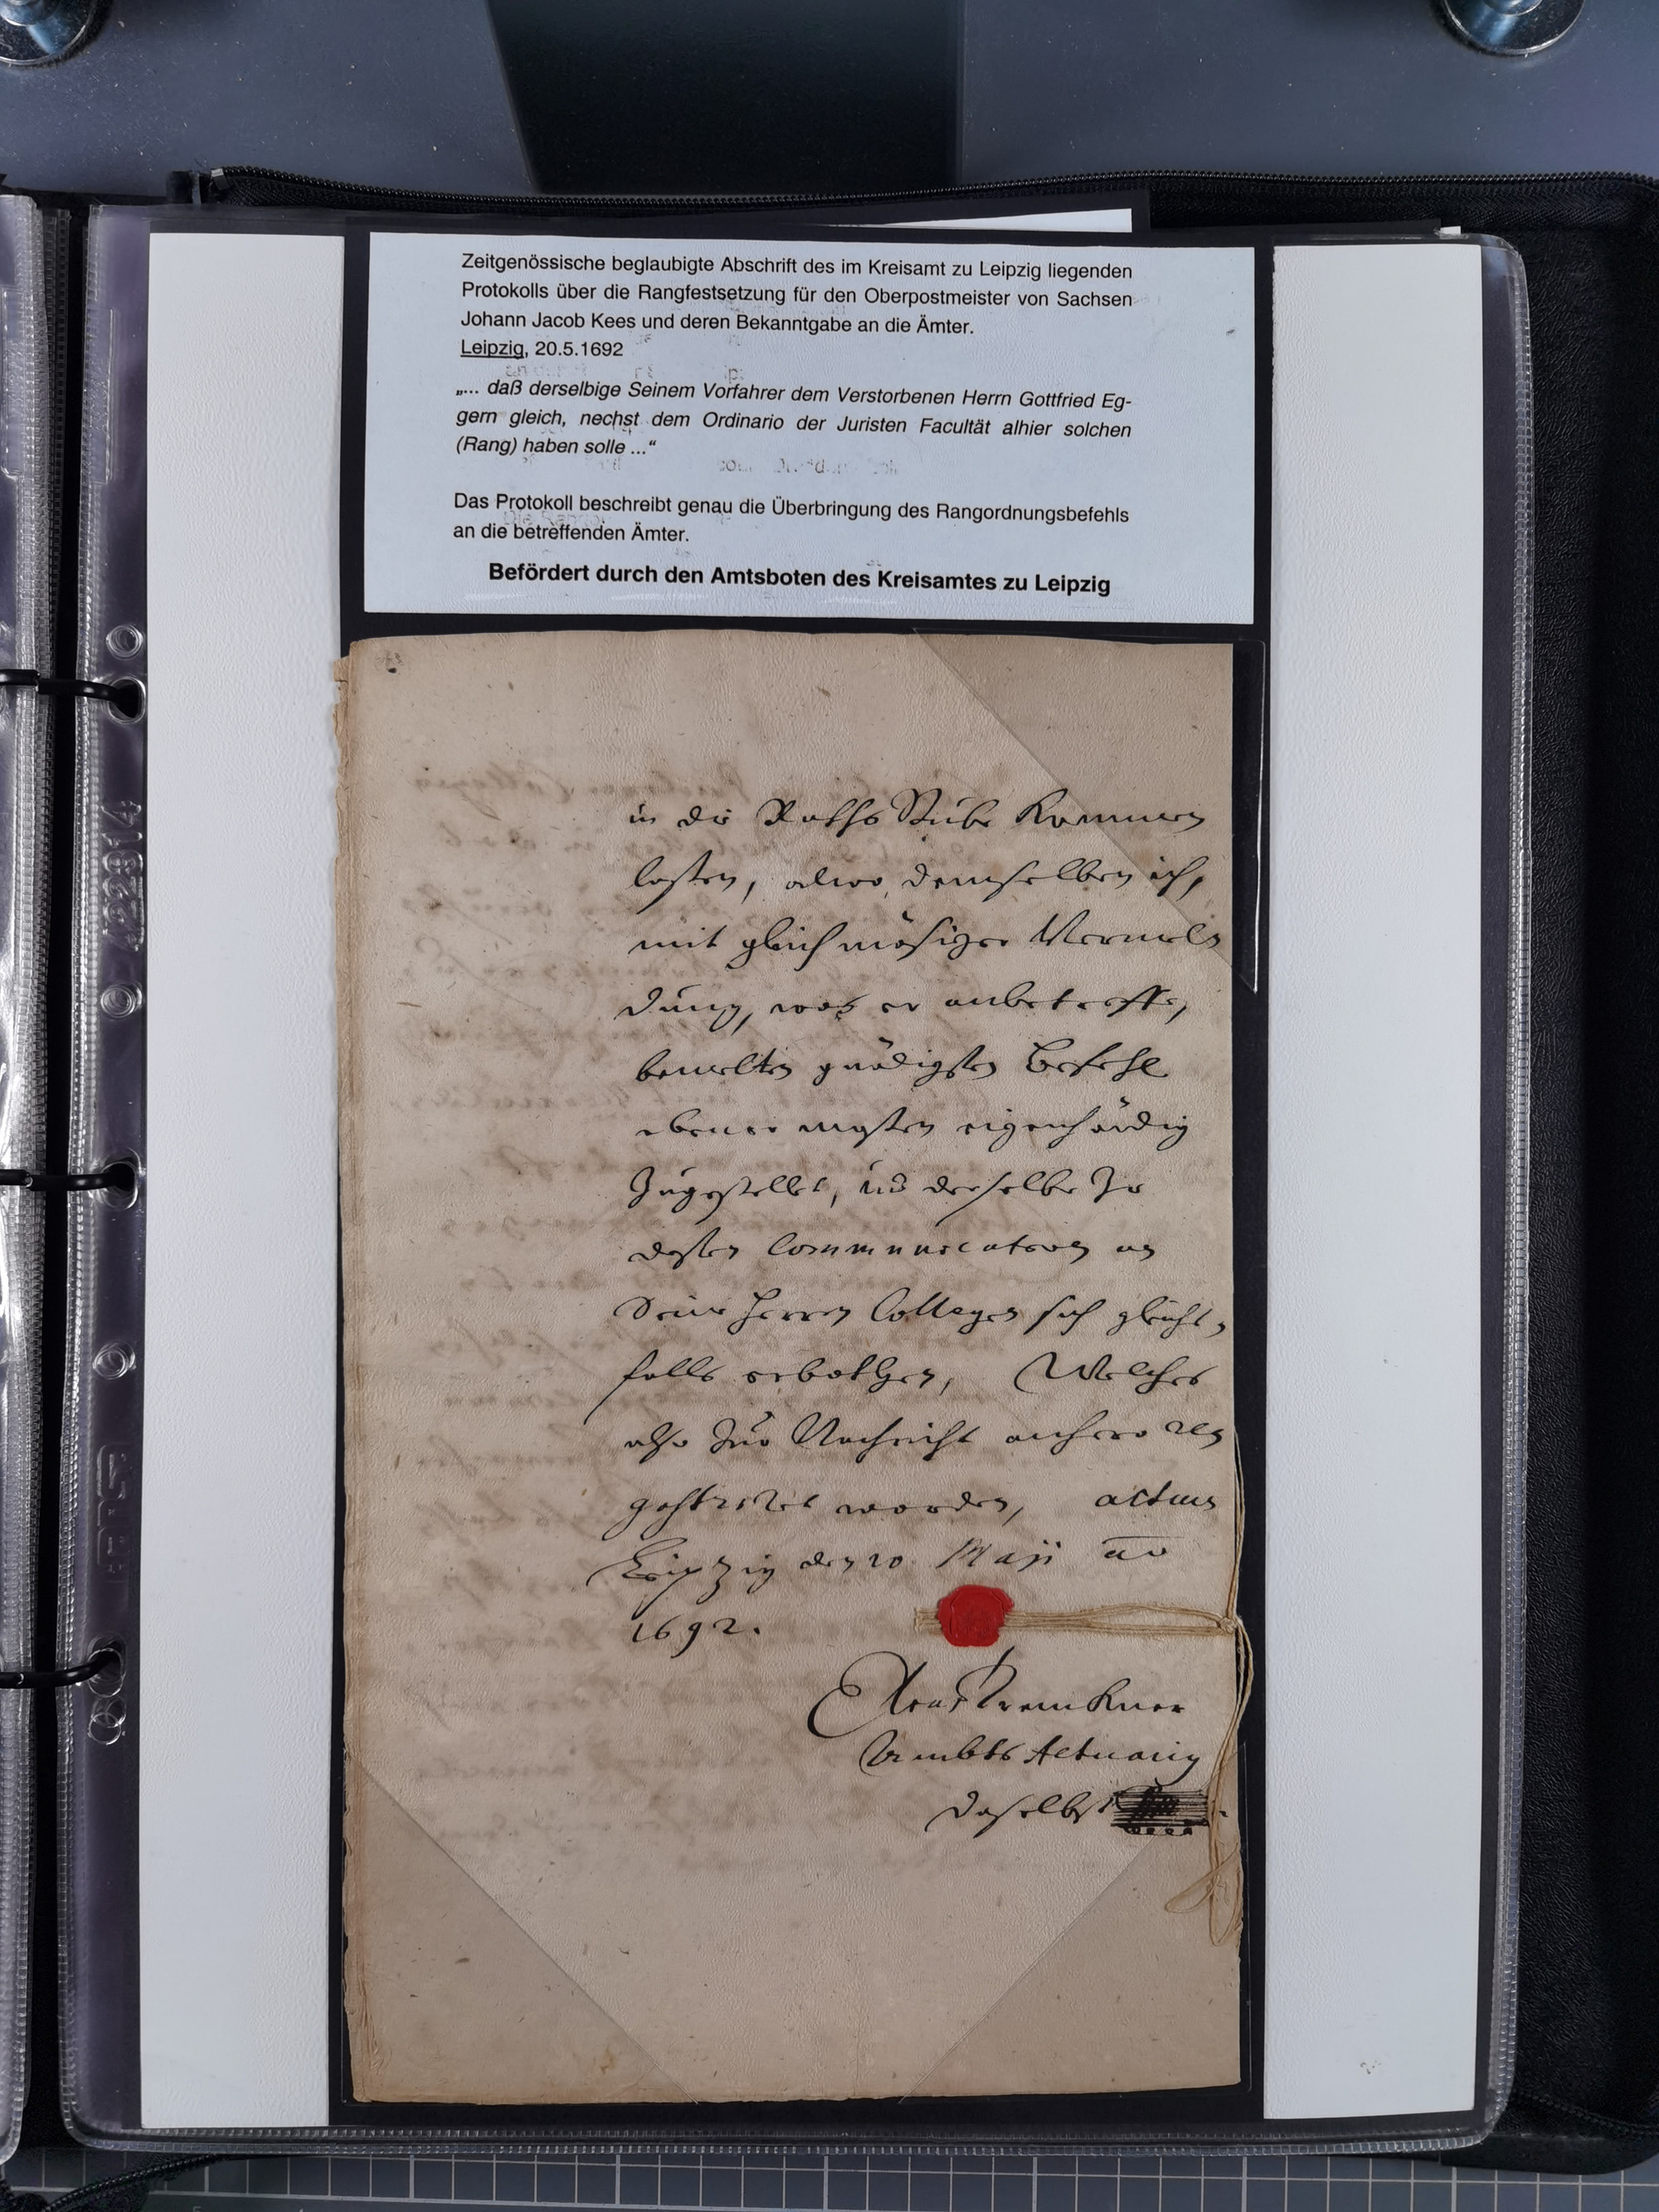 Zeitgenössische beglaubigte Abschrift des im Kreisamt zu Leipzig liegenden
Protokolls über die Rangfestsetzung für den Oberpostmeister von Sachsen
Johann Jacob Kees und deren Bekanntgabe an die Ämter.
Leipzig, 20.5.1692
„... daß derselbige Seinem Vorfahrer dem Verstorbenen Herrn Gottfried Eg-
gern gleich, nechst dem Ordinario der Juristen Facultät alhier solchen
(Rang) haben solle ...“
Das Protokoll beschreibt genau die Überbringung des Rangordnungsbefehls
an die betreffenden Ämter.
Befördert durch den Amtsboten des Kreisamtes zu Leipzig
in die Raths Stube kommen
laßen, alwo demselben ich,
mit gleichmäßiger Vermel-
dung, was er anbetreffe,
bemelten gnädigsten Befehl
ebener maßen eigenhändig
Zugestellet, und derselbe Zu
deßen Communication an
Seine Herren Collegen sich gleich-
falls erbothen, Welches
also Zur Nachricht anhero re-
gistriret worden, actum
Leipzig den 20 Maji
1692.
Ambts Actuarius
daselbst
422914